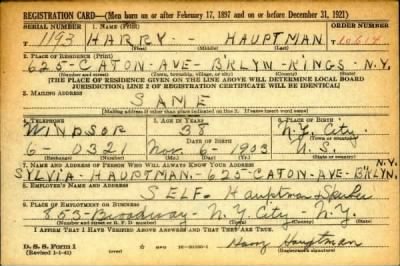 REGISTRATION CARD—(Men born on or after February 17, 1897 and on or before December 31, 1921)
SERIAL NUMBER 1. NAME (Print) ORDER NUMBER
T 1193 HARRY - HAUPTMAN 10614
(First) (Middle) (Last)
2. PLACE OF RESIDENCE (Print)
625-CATON-AVE-B'KLYN-KINGS-N.Y.
(Number and street) (Town, township, village, or city) (County) (State)
[THE PLACE OF RESIDENCE GIVEN ON THE LINE ABOVE WILL DETERMINE LOCAL BOARD
JURISDICTION; LINE 2 OF REGISTRATION CERTIFICATE WILL BE IDENTICAL]
3. MAILING ADDRESS
SAME
[Mailing address if other than place indicated on line 2. If same insert word same]
4. TELEPHONE 5. AGE IN YEARS 6. PLACE OF BIRTH
WINDSOR 38 N.Y. City
DATE OF BIRTH (Town or county)
6-0321 Nov. 6-1903 U.S.
(Exchange) (Number) (Mo.) (Day) (Yr.) (State or country)
7. NAME AND ADDRESS OF PERSON WHO WILL ALWAYS KNOW YOUR ADDRESS N.Y.
SYLVIA-HAUPTMAN-625-CATON-AVE-B'KLYN.
8. EMPLOYER'S NAME AND ADDRESS
SELF. Hauptman
9. PLACE OF EMPLOYMENT OR BUSINESS
853-Broadway-N.Y. City N.Y.
(Number and street or R. F. D. number) (Town) (County) (State)
I AFFIRM THAT I HAVE VERIFIED ABOVE ANSWERS AND THAT THEY ARE TRUE.
D. S. S. Form 1
(Revised 1-1-42) (over) Harry Hauptman
(Registrant's signature)